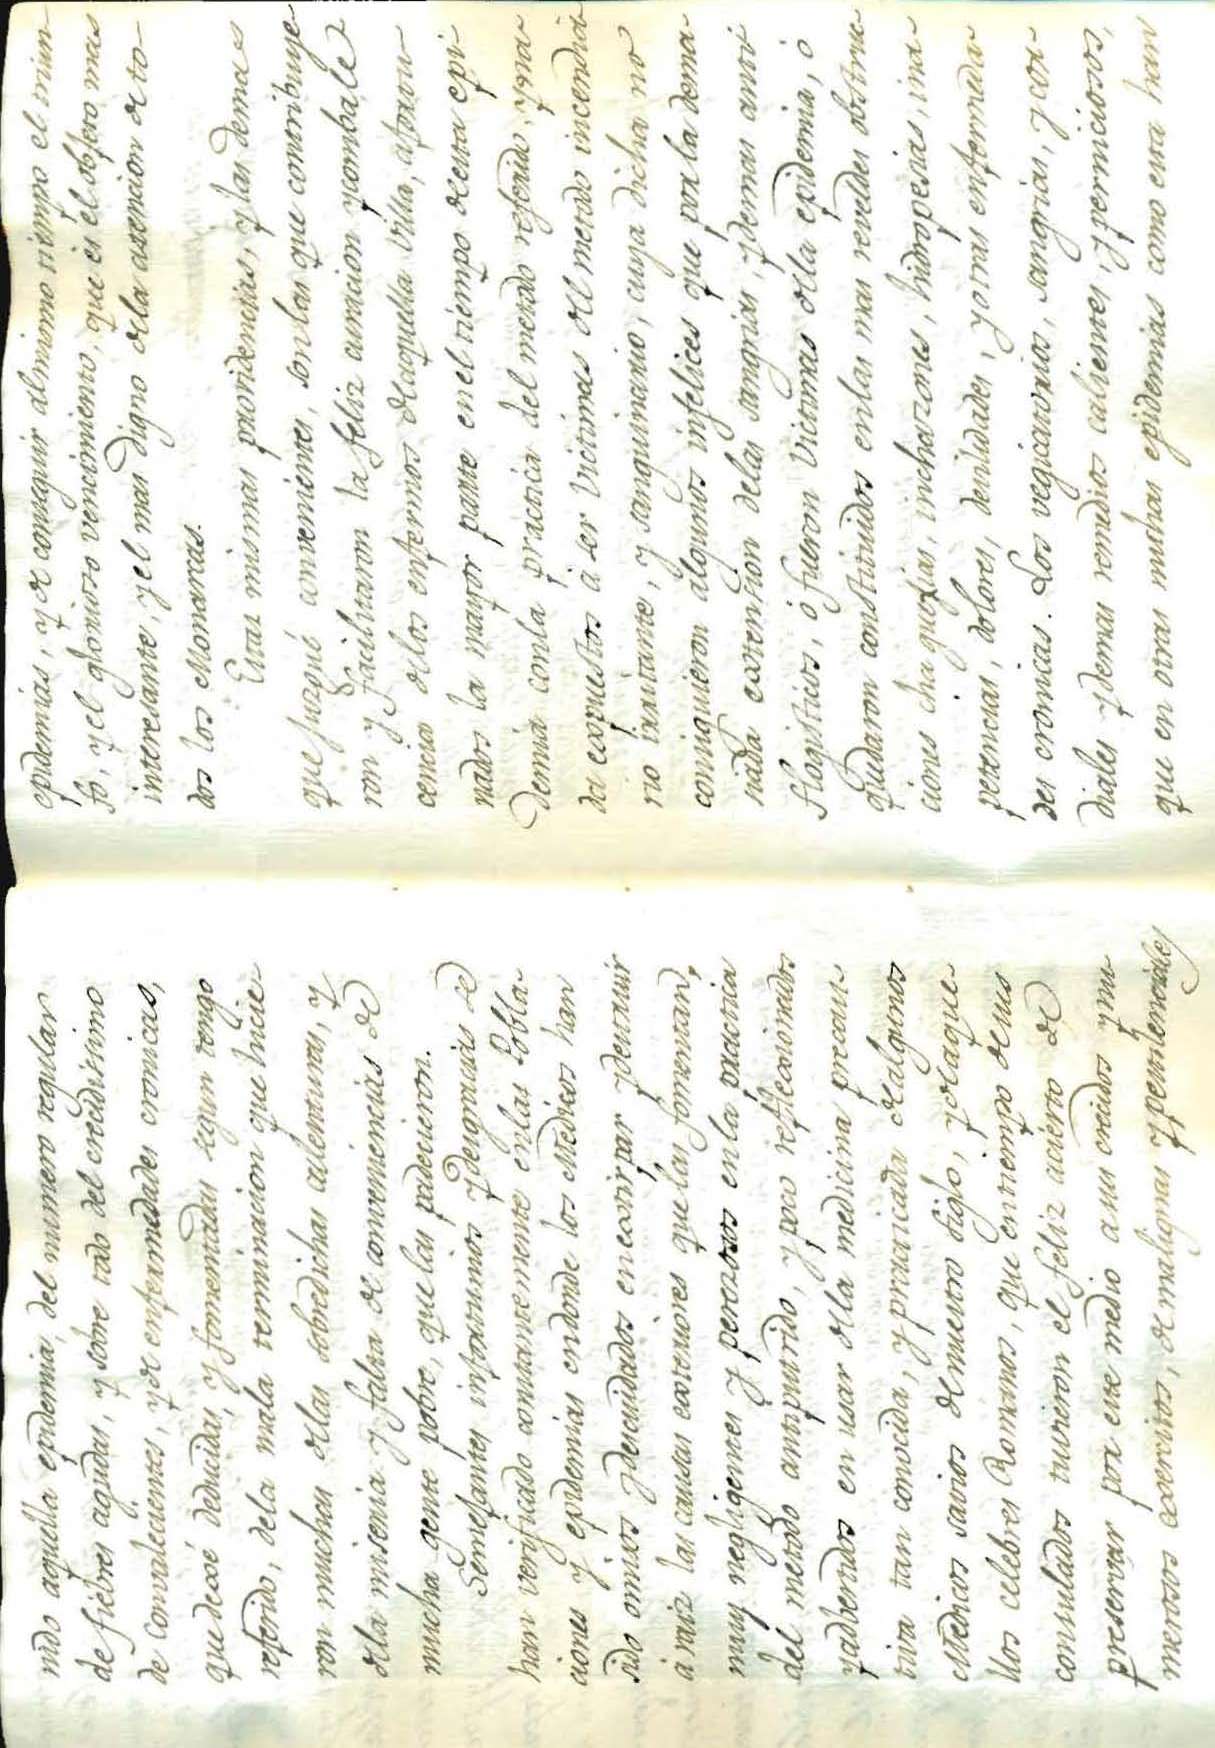 nido aquella epidemia, del numero regular
de fiebres agudas, y sobre todo del crecidisimo
de Convalecientes, y de enfermedades cronicas,
que dexé deducidas, y fomentadas segun tengo
referido, dela mala terminacion que hicie-
ron muchas delas sobredichas calenturas, y
dela miseria y falta de conveniencias de
mucha gente pobre, que las padecieron.
Semejantes infortunios y desgracias se
han verificado constantemente en las Pobla-
ciones y epidemias endonde los Medicos han
sido omisos y descuidados en extirpar y destruir
à raiz las causas exteriores que las fomentan,
muy negligentes y perezosos en la practica
del metodo antiputrido, y poco reflexionados
y advertidos en usar dela medicina precau-
tiva tan convida, y practicada de algunos
Medicos savios de nuestro siglo, y de aque-
llos celebres Romanos, que en tiempo de sus
consulados tuvieron el feliz acierto de
preservar por este medio a sus crecidos y nu-
merosos exercitos, de malignas y pestilenciales
epidemias, y de conseguir al mismo tiempo el triun-
fo, y el glorioso vencimiento, que es el objeto mas
interesante, y el mas digno dela atencion de to-
dos los Monarcas.
Estas mismas providencias, y las demas
que juzgué convenientes, son las que contribuye-
ron y facilitaron la feliz curacion y combale-
cencia delos enfermos de aquella Villa, aposen-
nados la mayor parte en el tiempo de esta epi-
demia con la practica del metodo referido, y ma-
des expuestos à ser victimas del metodo incendia-
rio irritante, y sanguinario, cuya dicha no
consiguieron algunos infelices que por la dema-
siada extension delas sangrias, y demas anti
flogisticos, ó fueron Victimas dela epidemia, ó
quedaron constituidos en las mas reveldes obstruc-
ciones chaquexias, inchazones, hidropesias, ina-
petencias, dolores, devilidades, y otras enfermeda-
des cronicas. Los vegicatorios, sangrias, y cor-
diales y demas remedios calientes, y perniciosos,
que en otras muchas epidemias como esta han